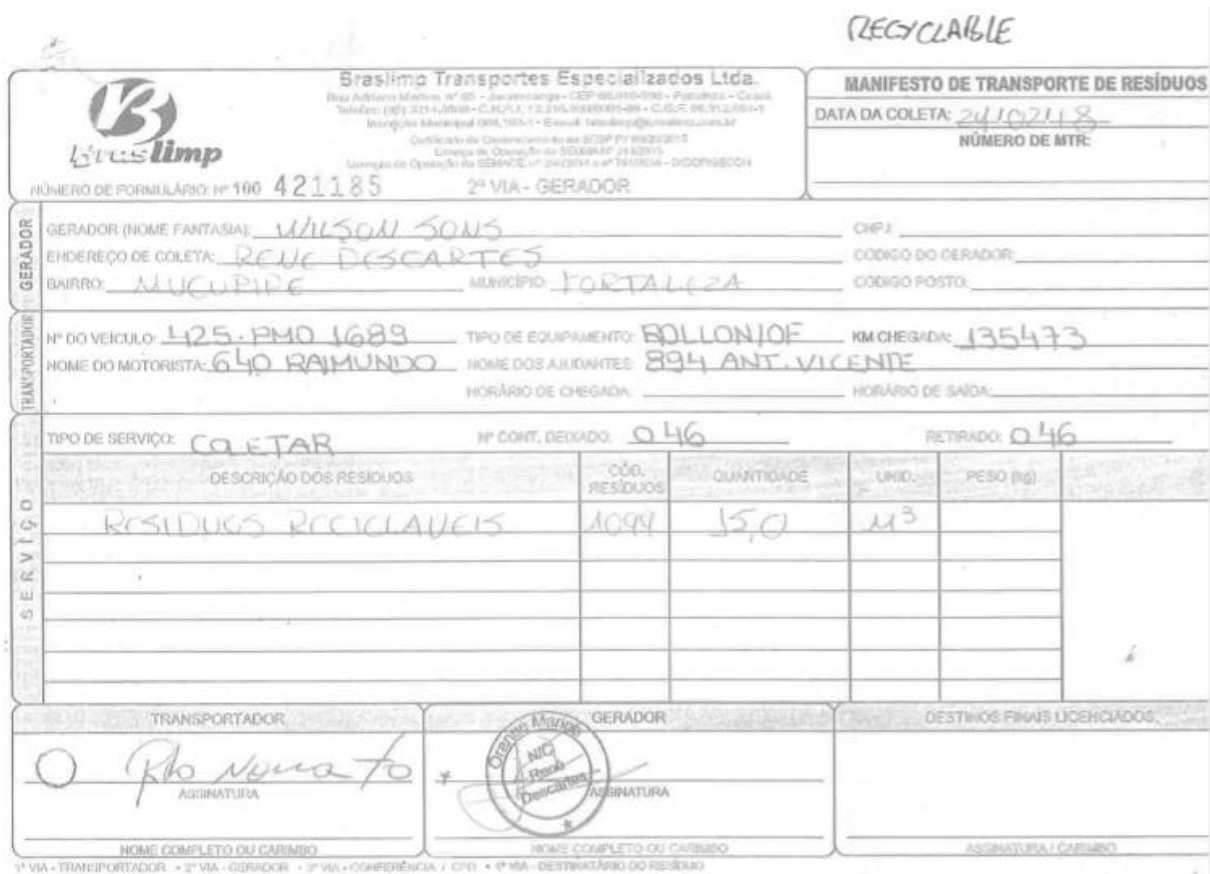 RECYCLABLE
Braslimp
Braslimp Transportes Especializados Ltda.
NÚMERO DE FORMULÁRIO: Nº 100 421185
2ª VIA - GERADOR
MANIFESTO DE TRANSPORTE DE RESÍDUOS
DATA DA COLETA: 24/02/18
NÚMERO DE MTR:
GERADOR
GERADOR (NOME FANTASIA): WILSON SONS CNPJ:
ENDEREÇO DE COLETA: RENE DESCARTES CÓDIGO DO GERADOR:
BAIRRO: MUCURIPE MUNICÍPIO: FORTALEZA CÓDIGO POSTO:
TRANSPORTADOR
Nº DO VEÍCULO: 425.PMO 1689 TIPO DE EQUIPAMENTO: ROLLONIOF KM CHEGADA: 135473
NOME DO MOTORISTA: 640 RAIMUNDO NOME DOS AJUDANTES: 894 ANT. VICENTE
HORÁRIO DE CHEGADA: HORÁRIO DE SAÍDA:
SERVIÇO
TIPO DE SERVIÇO: COLETAR Nº CONT. DEIXADO: 046 RETIRADO: 046
DESCRIÇÃO DOS RESÍDUOS CÓD. RESÍDUOS QUANTIDADE UNID. PESO (kg)
RESIDUOS RECICLAVEIS 1099 15,0 M³
TRANSPORTADOR GERADOR DESTINOS FINAIS LICENCIADOS
N/C
René
Descartes
ASSINATURA ASSINATURA
NOME COMPLETO OU CARIMBO NOME COMPLETO OU CARIMBO ASSINATURA / CARIMBO
1ª VIA - TRANSPORTADOR • 2ª VIA - GERADOR • 3ª VIA - CONFERÊNCIA / CPD • 4ª VIA - DESTINATÁRIO DO RESÍDUO